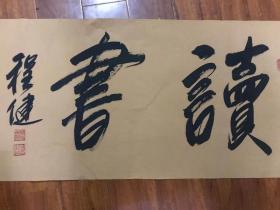 讀書
程健